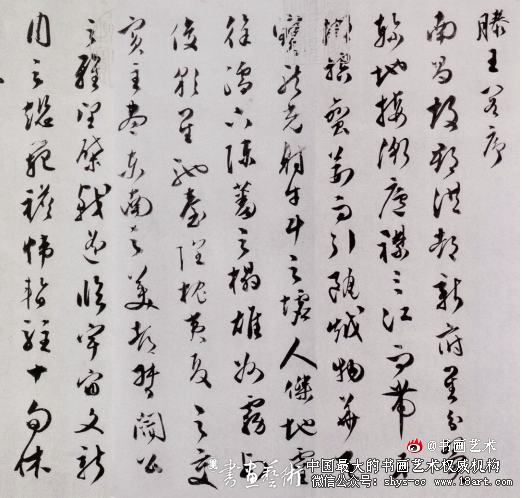 滕王閣序
南昌故郡洪都新府星分翼
軫地接衡廬襟三江而帶五
湖控蠻荊而引甌越物華天
寶龍光射牛斗之墟人傑地靈
徐孺下陳蕃之榻雄州霧列
俊彩星馳臺隍枕夷夏之交
賓主盡東南之美都督閻公
之雅望棨戟遙臨宇文新
州之懿範襜帷暫駐十旬休
書畫藝術
@书画艺术
中国最大的书画艺术权威机构
微信公众号: shys-cc 网址: www.18art.com